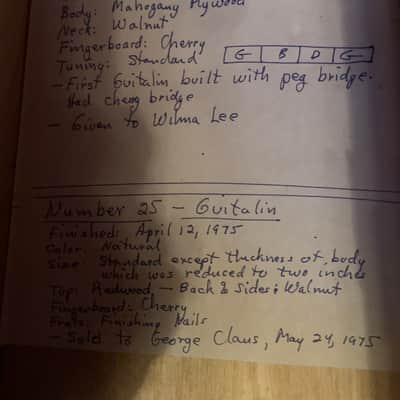 Body: Mahogany Plywood
Neck: Walnut
Fingerboard: Cherry
Tuning: Standard G B D G
- First Guitalin built with peg bridge.
Had cherry bridge
- Given to Wilma Lee
Number 25 - Guitalin
Finished: April 12, 1975
Color: Natural
Size: Standard except thickness of body
which was reduced to two inches
Top: Redwood, - Back & Sides: Walnut
Fingerboard: Cherry
Frets: Finishing Nails
- Sold to George Claus, May 24, 1975